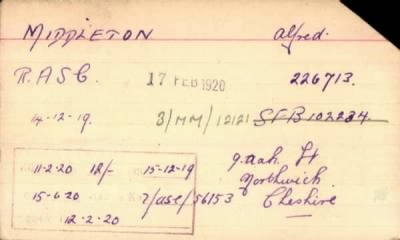 MIDDLETON Alfred.
R.A.S.C. 17 FEB 1920 226713.
14-12-19. 3/MM/12121 SFB 102234.
11-2-20 12/- 15-12-19
15-6-20 2/ase/56153
12-2-20
St
Northwich
Cheshire